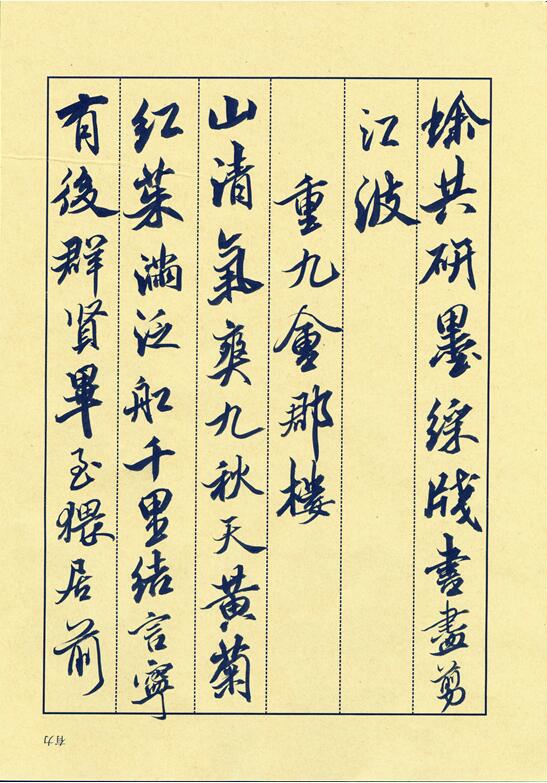 蜍共研墨綵牋書盡剪
江波
重九會郡樓
山清氣爽九秋天黃菊
紅茱滿泛舡千里結言寧
有後群賢畢至猥居前
有力